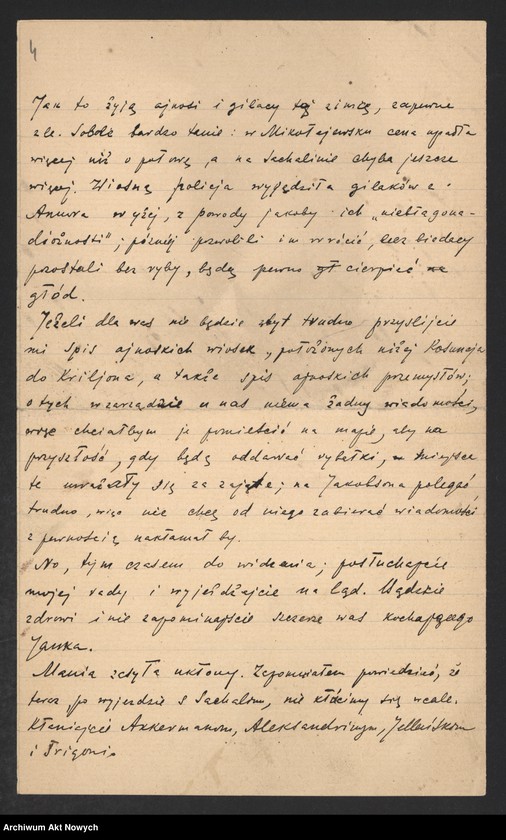 4
Jak to żyją ajnosi i gilacy tej zimy, zapewne
źle. Soboli bardzo tanie: w Mikołajewsku cena upadła
więcej niż o połowę, a na Sachalinie chyba jeszcze
więcej. Wiosną policja wypędziła gilaków z
Amura wyżej, z powody jakoby ich „niebłagona-
diożnosti"; później pozwolili im wrócić, lecz biedacy
pozostali bez ryby, będą pewno cierpieć
głód.
Jeżeli dla was nie będzie zbyt trudno przyślijcie
mi spis ajnoskich wiosek, położonych niżej Kosunaja
do Kriljona, a także spis ajnoskich przemysłów;
o tych w zarządzie u nas niema żadny wiadomości,
więc chciałbym je pomieścić na mapie, aby na
przyszłość, gdy będą oddawać rybałki, miejsca
te uważały się za zajęte; na Jakobsona polegać
trudno, więc nie chcę od niego zabierać wiadomości
z pewnością nakłamał by.
No, tym czasem do widzenia; posłuchajcie
mojej rady i wyjeżdżajcie na ląd. Bądźcie
zdrowi i nie zapominajcie szczerze was kochającego
Janka.
Mania zasyła ukłony. Zapomniałem powiedzieć, że
teraz, po wyjezdzie s Sachalinu, nie kłócimy się wcale.
Kłaniajcie Akkermanom, Aleksandrinym,
i Trigoni.
Archiwum Akt Nowych